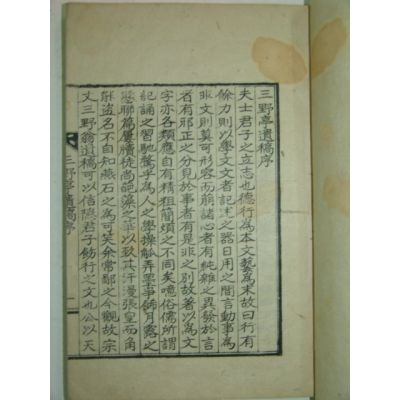 三野亭遺稿序
夫士君子之立志也德行爲本文藝爲末故曰行有
餘力則以學文文者記述之器日用之間言動事爲
非文則莫可形容而崩諸心者有純雜之異發於言
者有邪正之分見於事者有是非之別故著以爲文
字亦各類應自有精粗簡煩之不同矣噫俗儒所謂
記誦之習馳騖乎爲人之學操觚弄墨爭飾月露之
態聯篇屢牘徒尚葩藻之華以致其汗漫張皇而角
能盜名不自知燕石之爲可笑余常鄙之今觀故宗
丈三野翁遺稿可以信際君子飭行之文也公以天
三野亭遺稿序